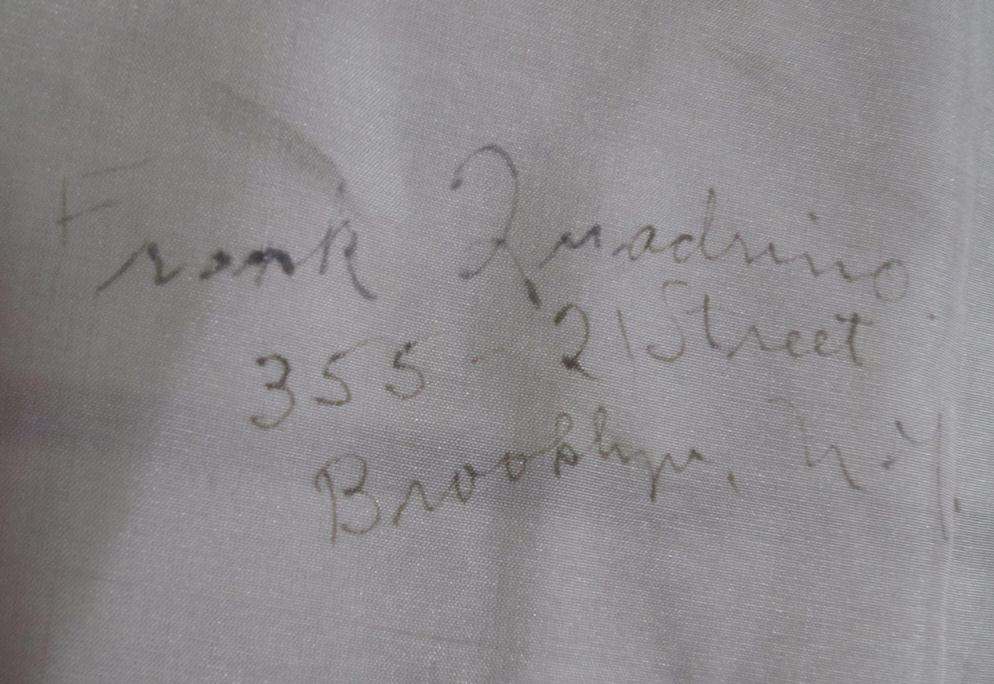 Frank Quadrino
355 - 21 Street
Brooklyn, N.Y.